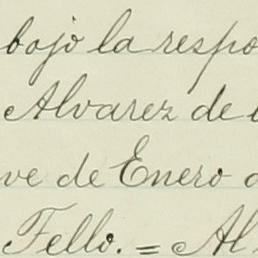 bajo la respo
Alvarez de l
ve de Enero d
Fello. = Al